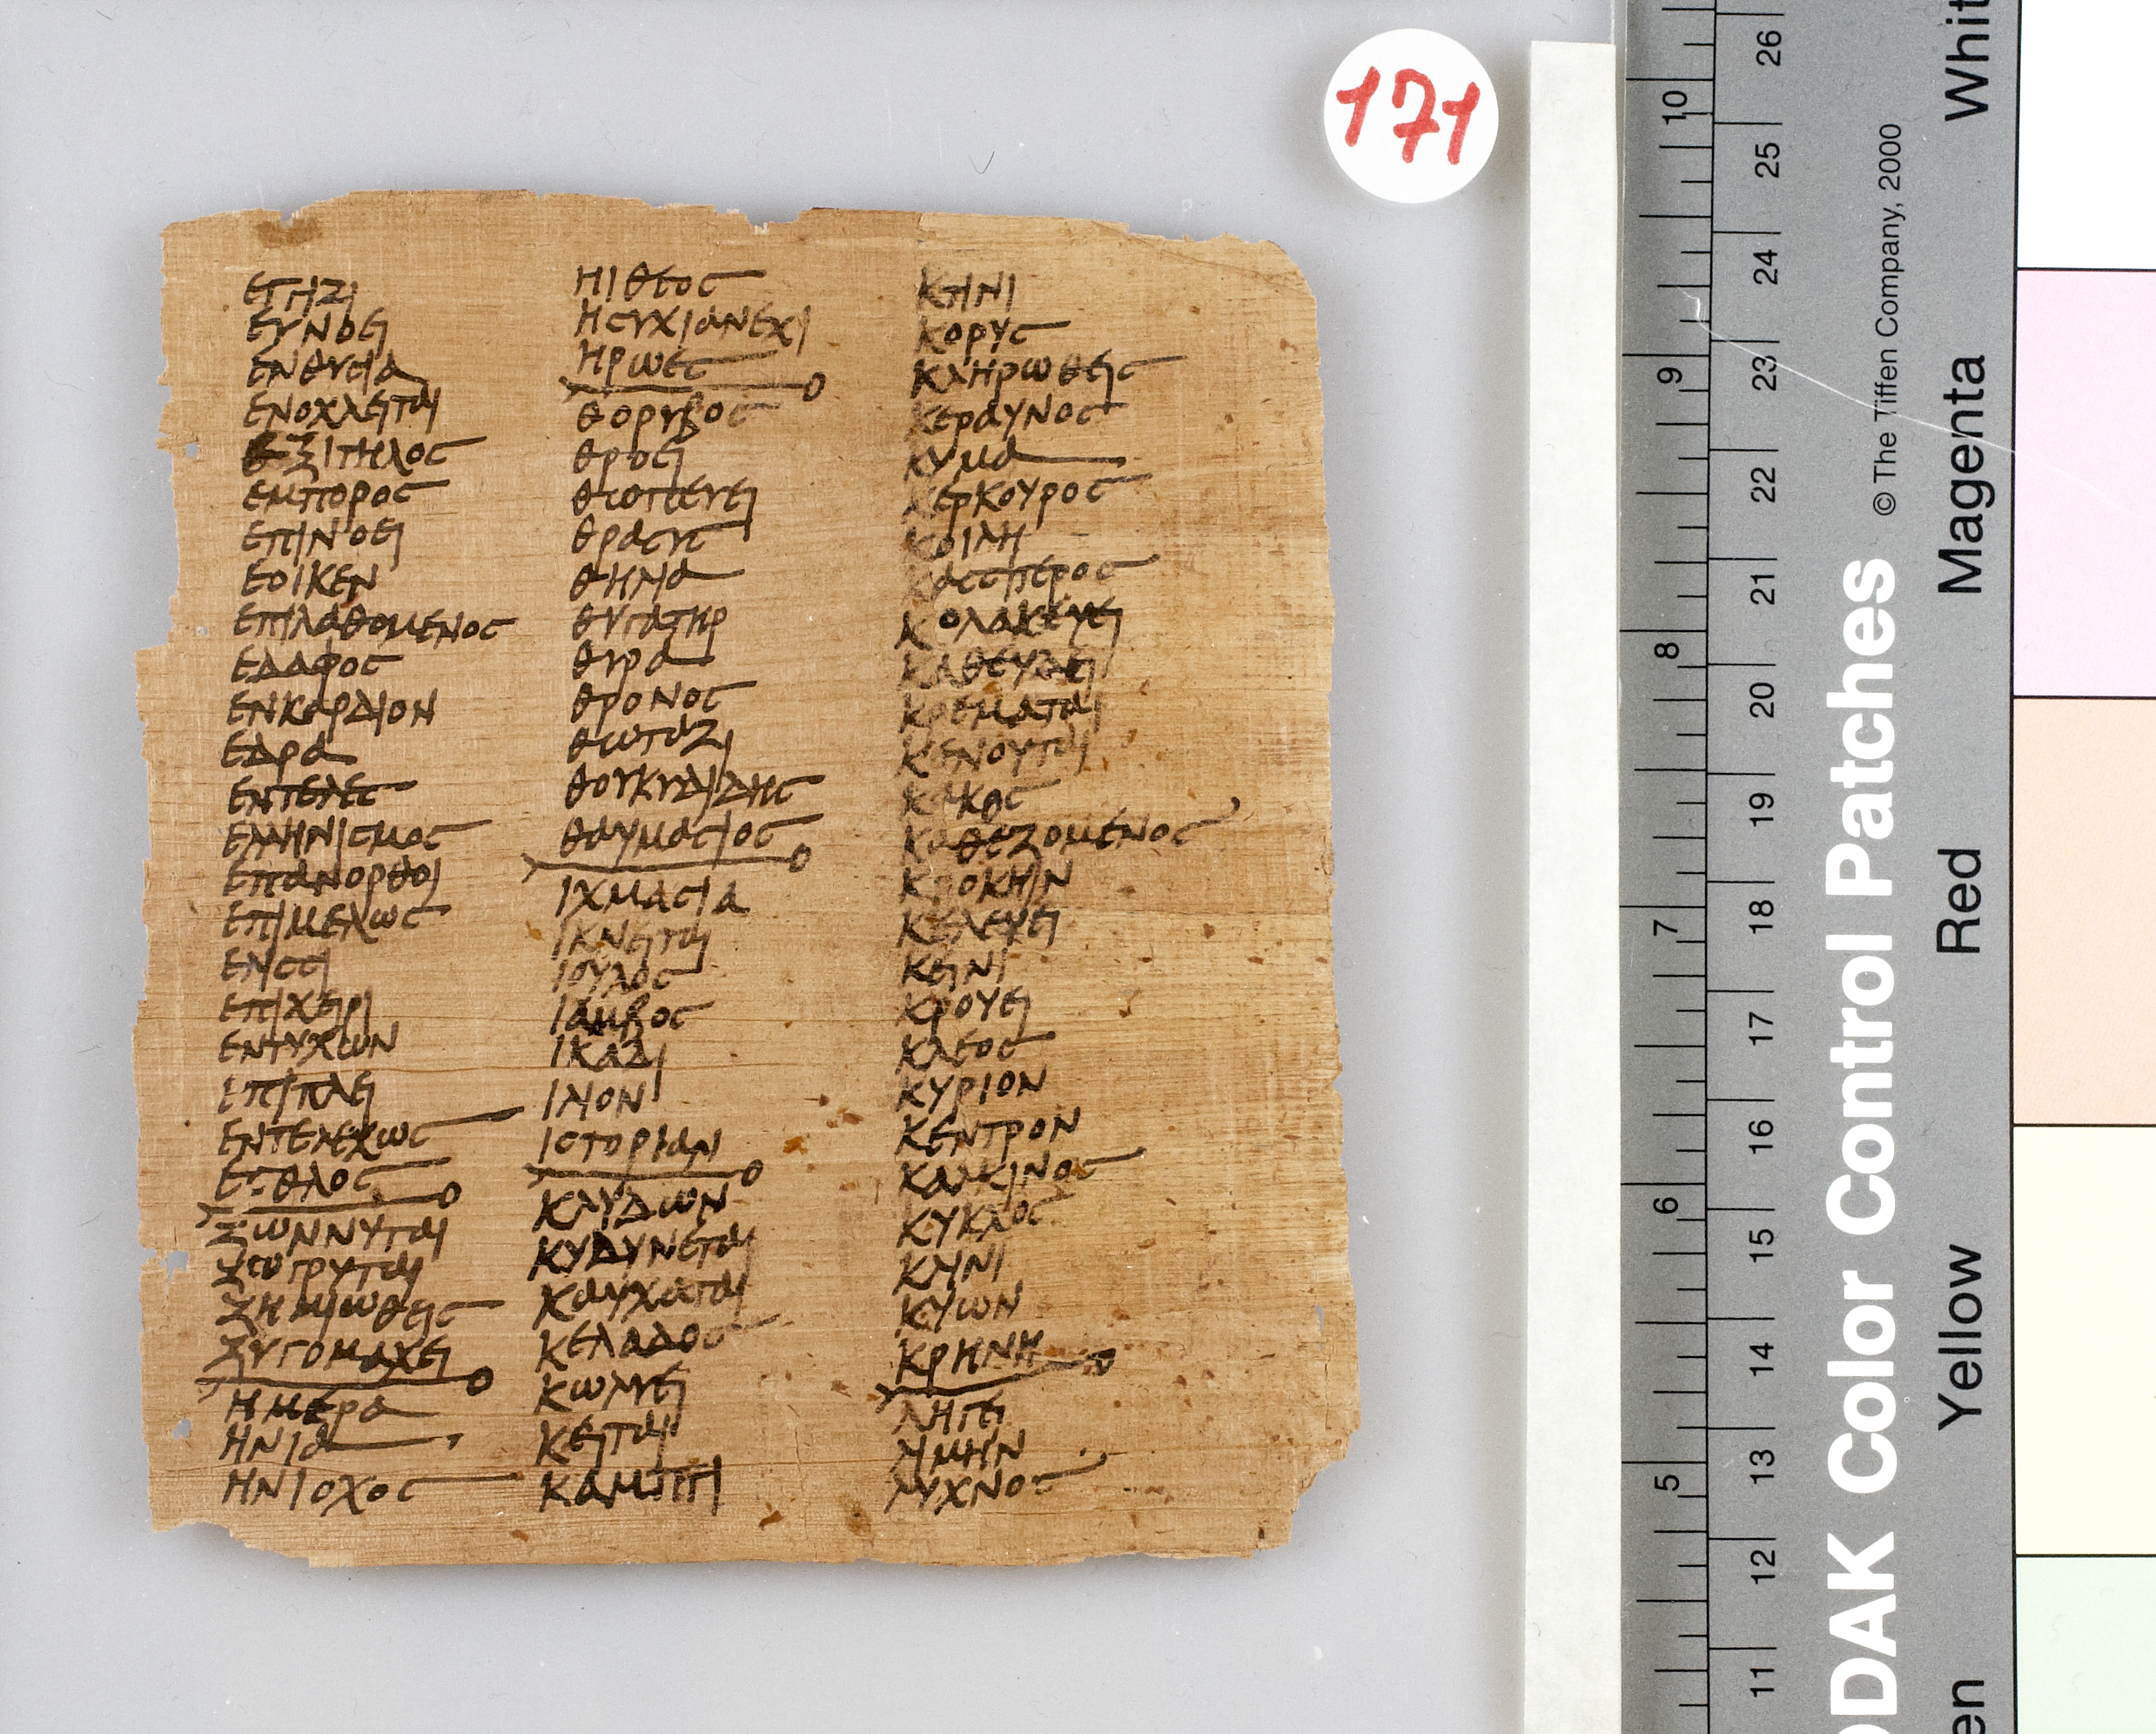 ΕΓΓΙΖΙ
ΕΥΝΟΕΙ
ΕΝΘΥϹΙΑ
ΕΝΟΧΛΕΙΤΑΙ
ΕΞΙΤΗΛΟϹ
ΕΜΠΟΡΟϹ
ΕΠΙΝΟΕΙ
ΕΟΙΚΕΝ
ΕΠΙΛΑΘΟΜΕΝΟϹ
ΕΔΑΦΟϹ
ΕΝΚΑΡΔΙΟΝ
ΕΔΡΑ
ΕΝΤΕΛΕϹ
ΕΛΛΗΝΙϹΜΟϹ
ΕΠΑΝΟΡΘΟΙ
ΕΠΙΜΕΛΩϹ
ΕΠΙΧΕΙΡΙ
ΕΝΤΥΧΩΝ
ΕΠΙΠΛΕΙ
ΕΝΤΕΛΕΧΩϹ
ΕϹΘΛΟϹ
ΖΩΝΝΥΤΑΙ
ΖΩΓΡΥΤΑΙ
ΖΗΜΙΩΘΕΙϹ
ΖΥΓΟΜΑΧΕΙ
ΗΜΕΡΑ
ΗΝΙΑ
ΗΝΙΟΧΟϹ
ΗΙΘΕΟϹ
ΗϹΥΧΙΑΝΕΧΙ
ΗΡΩΕϹ
ΘΟΡΥΒΟϹ
ΘΡΟΕΙ
ΘΩΠΕΥΕΙ
ΘΡΑϹΥϹ
ΘΗΝΑ
ΘΥΓΑΤΗΡ
ΘΥΡΑ
ΘΡΟΝΟϹ
ΘΩΤΑΖΙ
ΘΟΥΚΥΔΙΔΗϹ
ΘΑΥΜΑϹΙΟϹ
ΙΧΜΑϹΙΑ
ΙΚΝΕΙΤΑΙ
ΙΟΥΛΟϹ
ΙΑΜΒΟϹ
ΙΚΑΔΙ
ΙΛΙΟΝ
ΙϹΤΟΡΙΑΝ
ΚΛΥΔΩΝ
ΚΥΔΥΝΕΤΑΙ
ΚΑΥΧΑΤΑΙ
ΚΕΛΑΔΟϹ
ΚΩΛΥΕΙ
ΚΕΙΤΑΙ
ΚΑΜΠΤΙ
ΚΤΙΝΙ
ΚΟΡΥϹ
ΚΛΗΡΩΘΕΙϹ
ΚΕΡΑΥΝΟϹ
ΚΥΜΑ
ΚΕΡΚΟΥΡΟϹ
ΚΟΙΛΗ
ΚΑϹϹΙΤΕΡΟϹ
ΚΟΛΑΚΕΥΕΙ
ΚΑΘΕΥΔΕΙ
ΚΡΕΜΑΤΑΙ
ΚΕΝΟΥΤΑΙ
ΚΑΚΟϹ
ΚΑΘΕΖΟΜΕΝΟϹ
ΚΡΟΚΗΙΝ
ΚΕΛΕΥΕΙ
ΚΕΙΝΙ
ΚΡΟΥΕΙ
ΚΛΕΟϹ
ΚΥΡΙΟΝ
ΚΕΝΤΡΟΝ
ΚΑΛΚΙΝΟϹ
ΚΥΚΛΟϹ
ΚΛΙΝΙ
ΚΥΩΝ
ΚΡΗΝΗ
ΛΗΓΕΙ
ΛΙΜΗΝ
ΛΥΧΝΟϹ
171